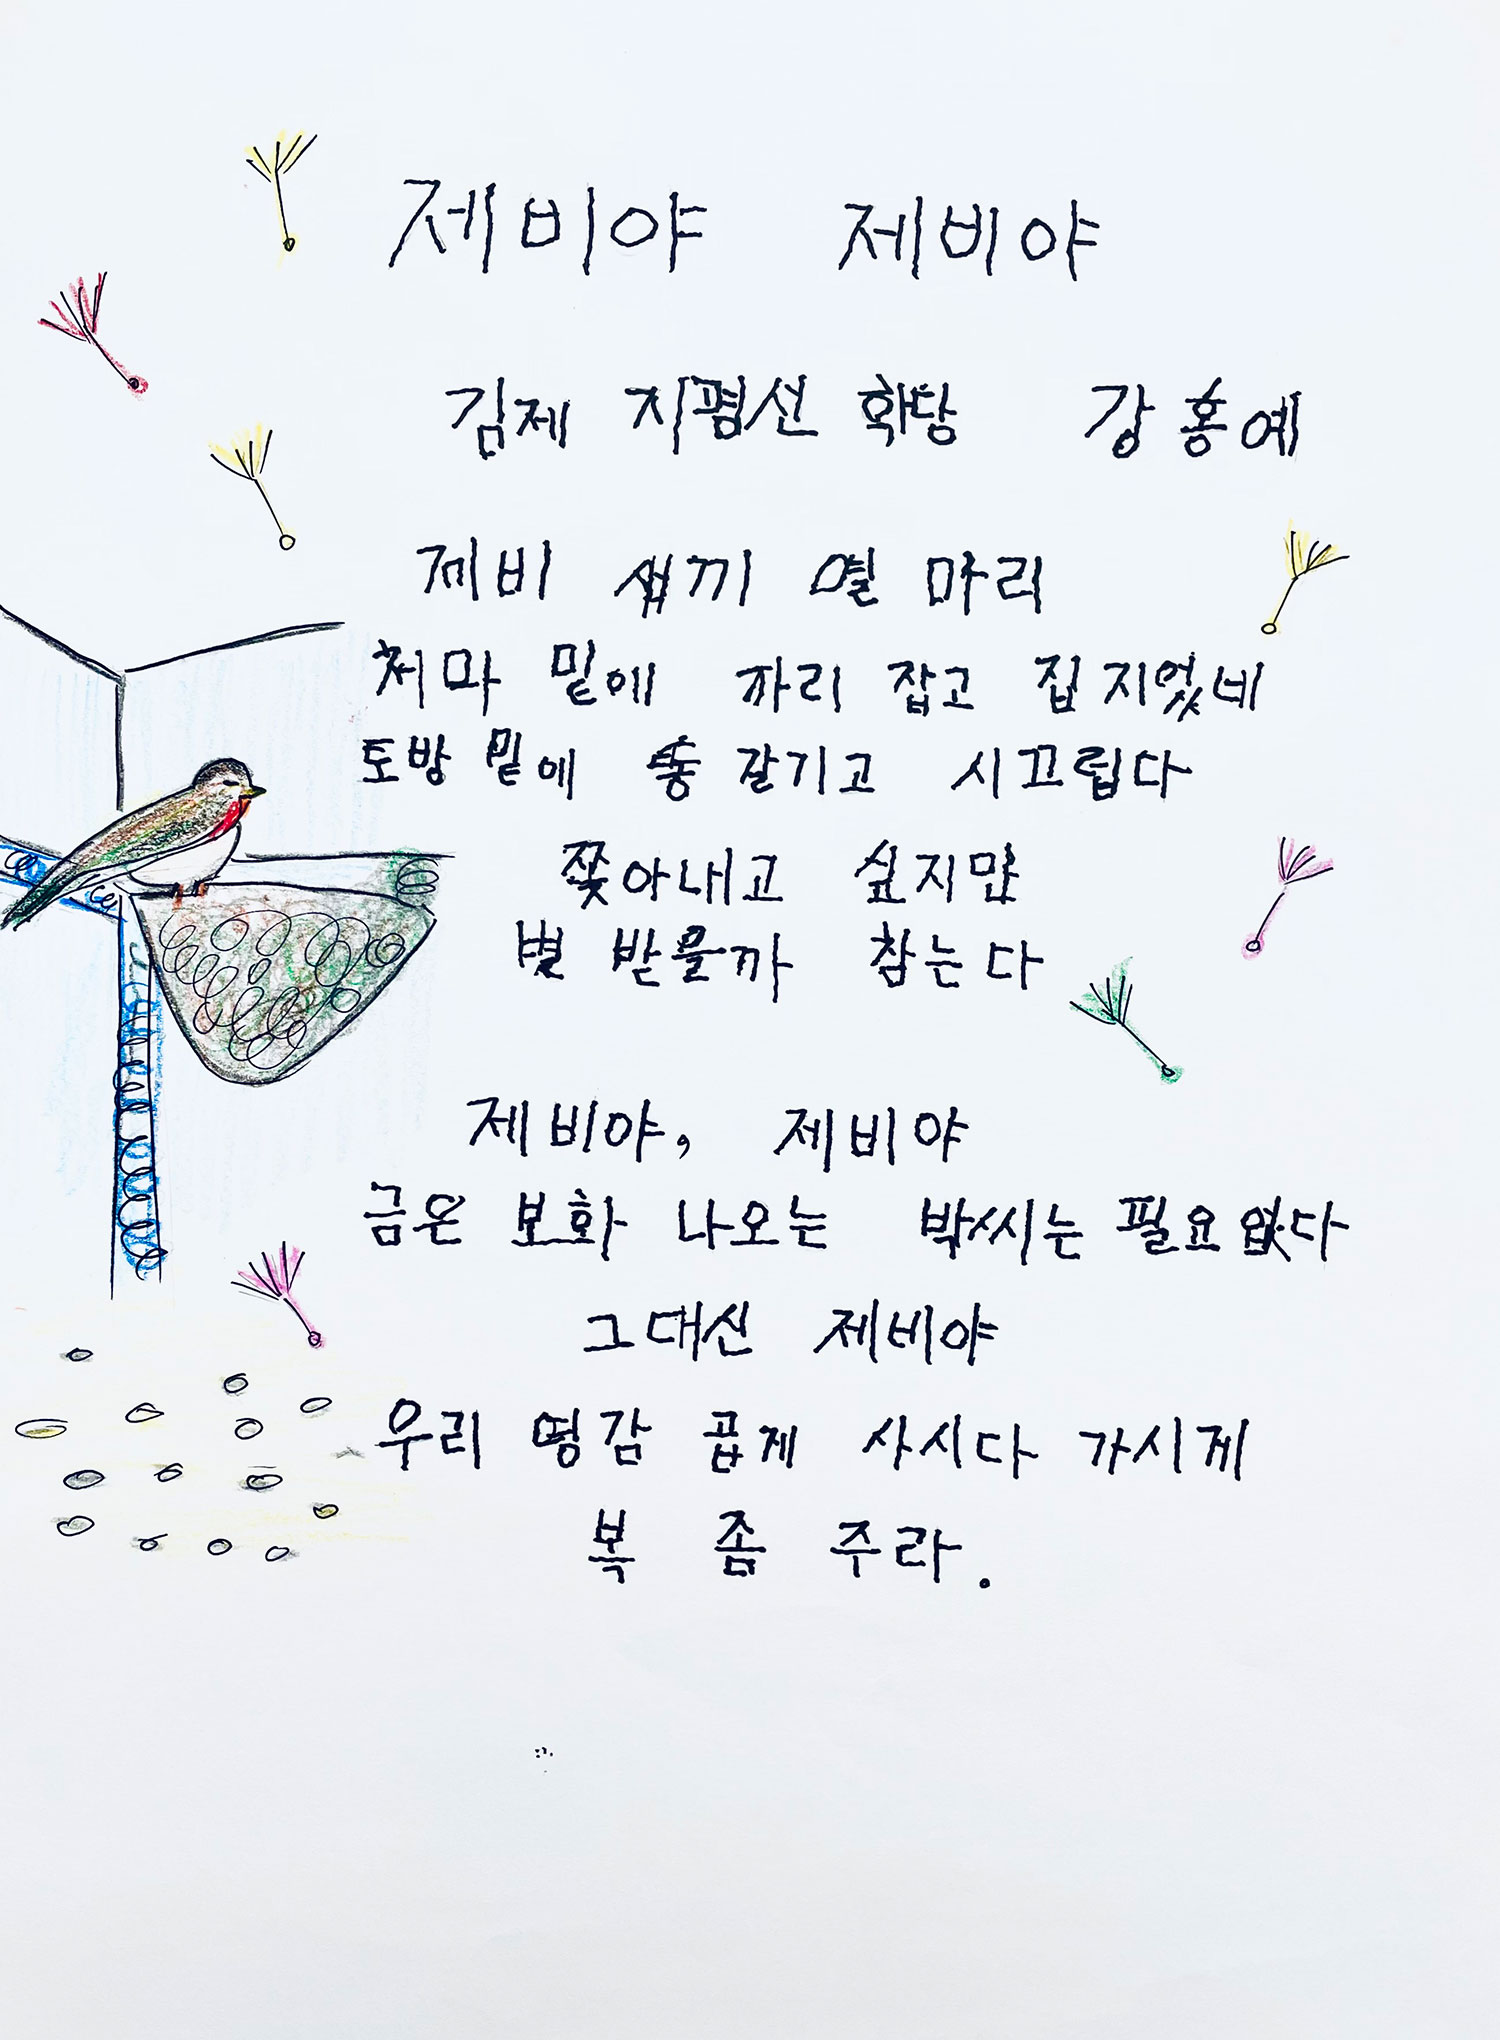 제비야 제비야
김제 지평선 학당 강홍예
제비 새끼 열 마리
처마 밑에 자리 잡고 집 지었네
토방 밑에 똥 갈기고 시끄럽다
쫓아내고 싶지만
벌 받을까 참는다
제비야, 제비야
금은 보화 나오는 박씨는 필요없다
그대신 제비야
우리 영감 곱게 사시다 가시게
복 좀 주라.